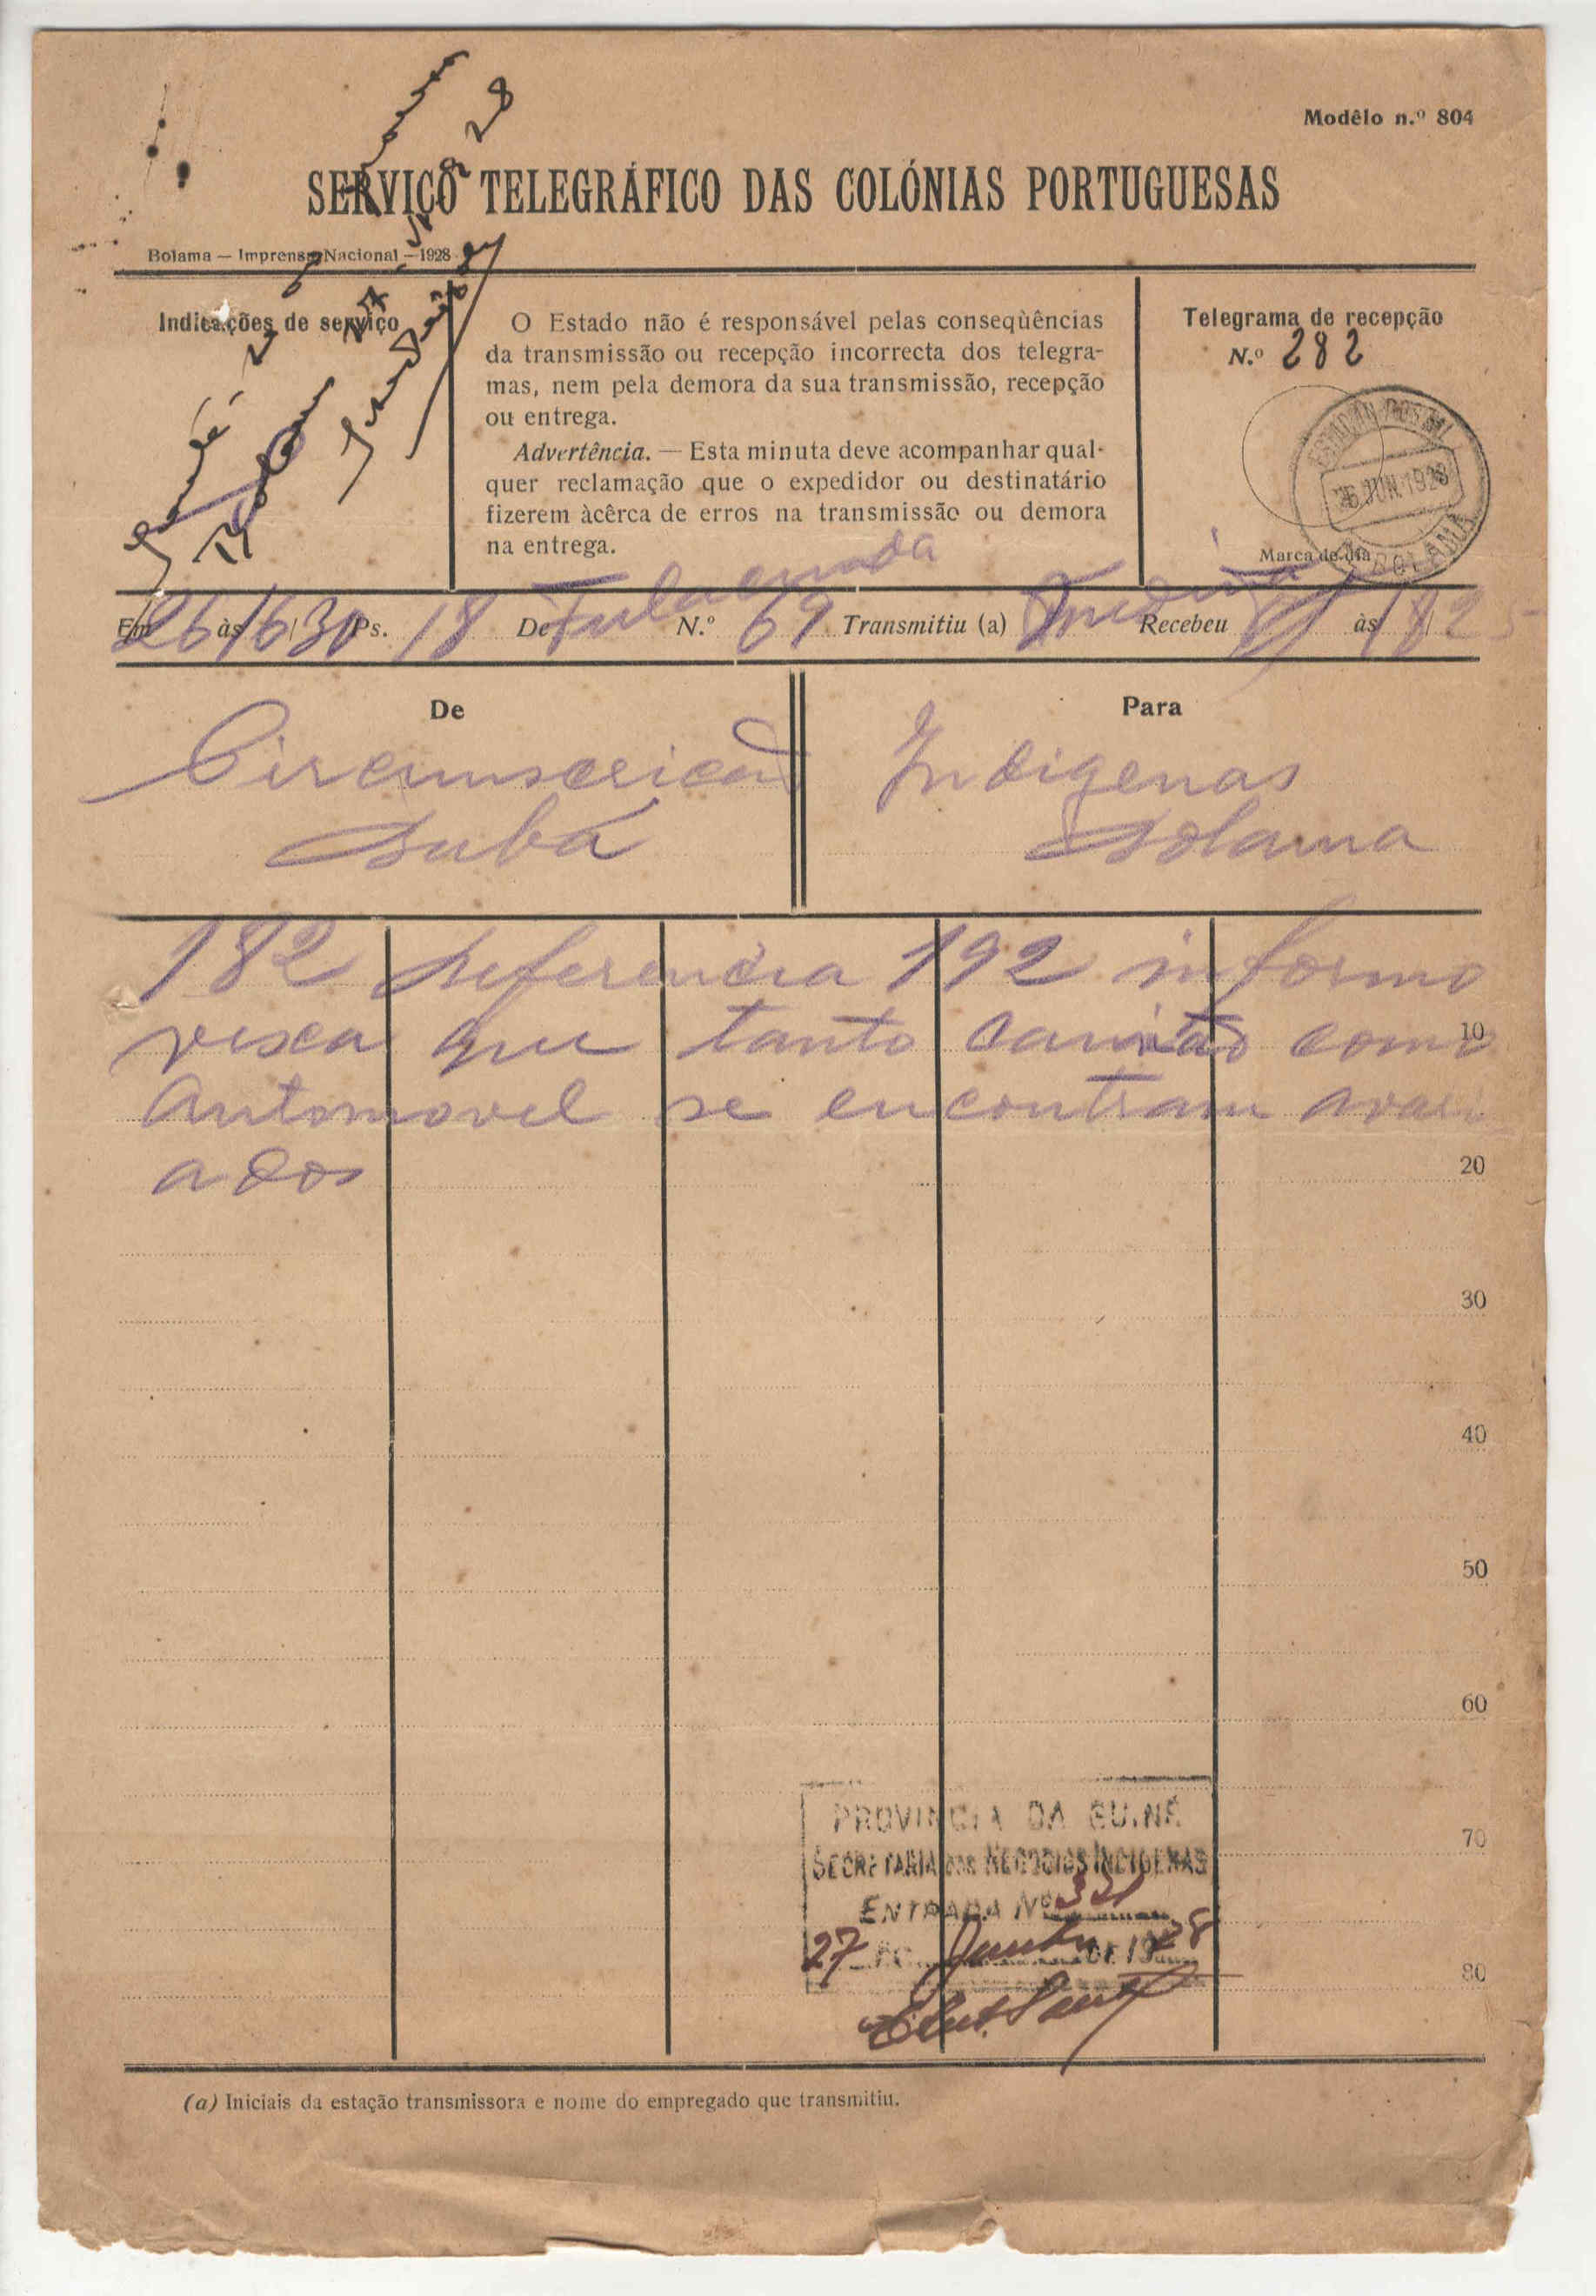 Modêlo n.º 804
SERVIÇO TELEGRÁFICO DAS COLÓNIAS PORTUGUESAS
Bolama — Imprensa Nacional — 1928
Indicações de serviço
O Estado não é responsável pelas conseqùências
da transmissão ou recepção incorrecta dos telegra-
mas, nem pela demora da sua transmissão, recepção
ou entrega.
Advertência. — Esta minuta deve acompanhar qual-
quer reclamação que o expedidor ou destinatário
fizerem àcêrca de erros na transmissão ou demora
na entrega.
Telegrama de recepção
N.º 282
JUN. 1928
BOLAMA
Marca do dia
Em 26 às 1630 Ps. 18 De Fulacunda N.º 69 Transmitiu (a) Recebeu às 1825
De
Circunscricão
Buba
Para
Indigenas
Bolama
182 Referencia 192 informo
vexa que tanto camião como
automovel se encontram avari
ados
10
20
30
40
50
60
70
80
PROVINCIA DA GUINÉ
SECRETARIA DOS NEGOCIOS INDIGENAS
ENTRADA Nº 321
27 DE Junho DE 1928
(a) Iniciais da estação transmissora e nome do empregado que transmitiu.